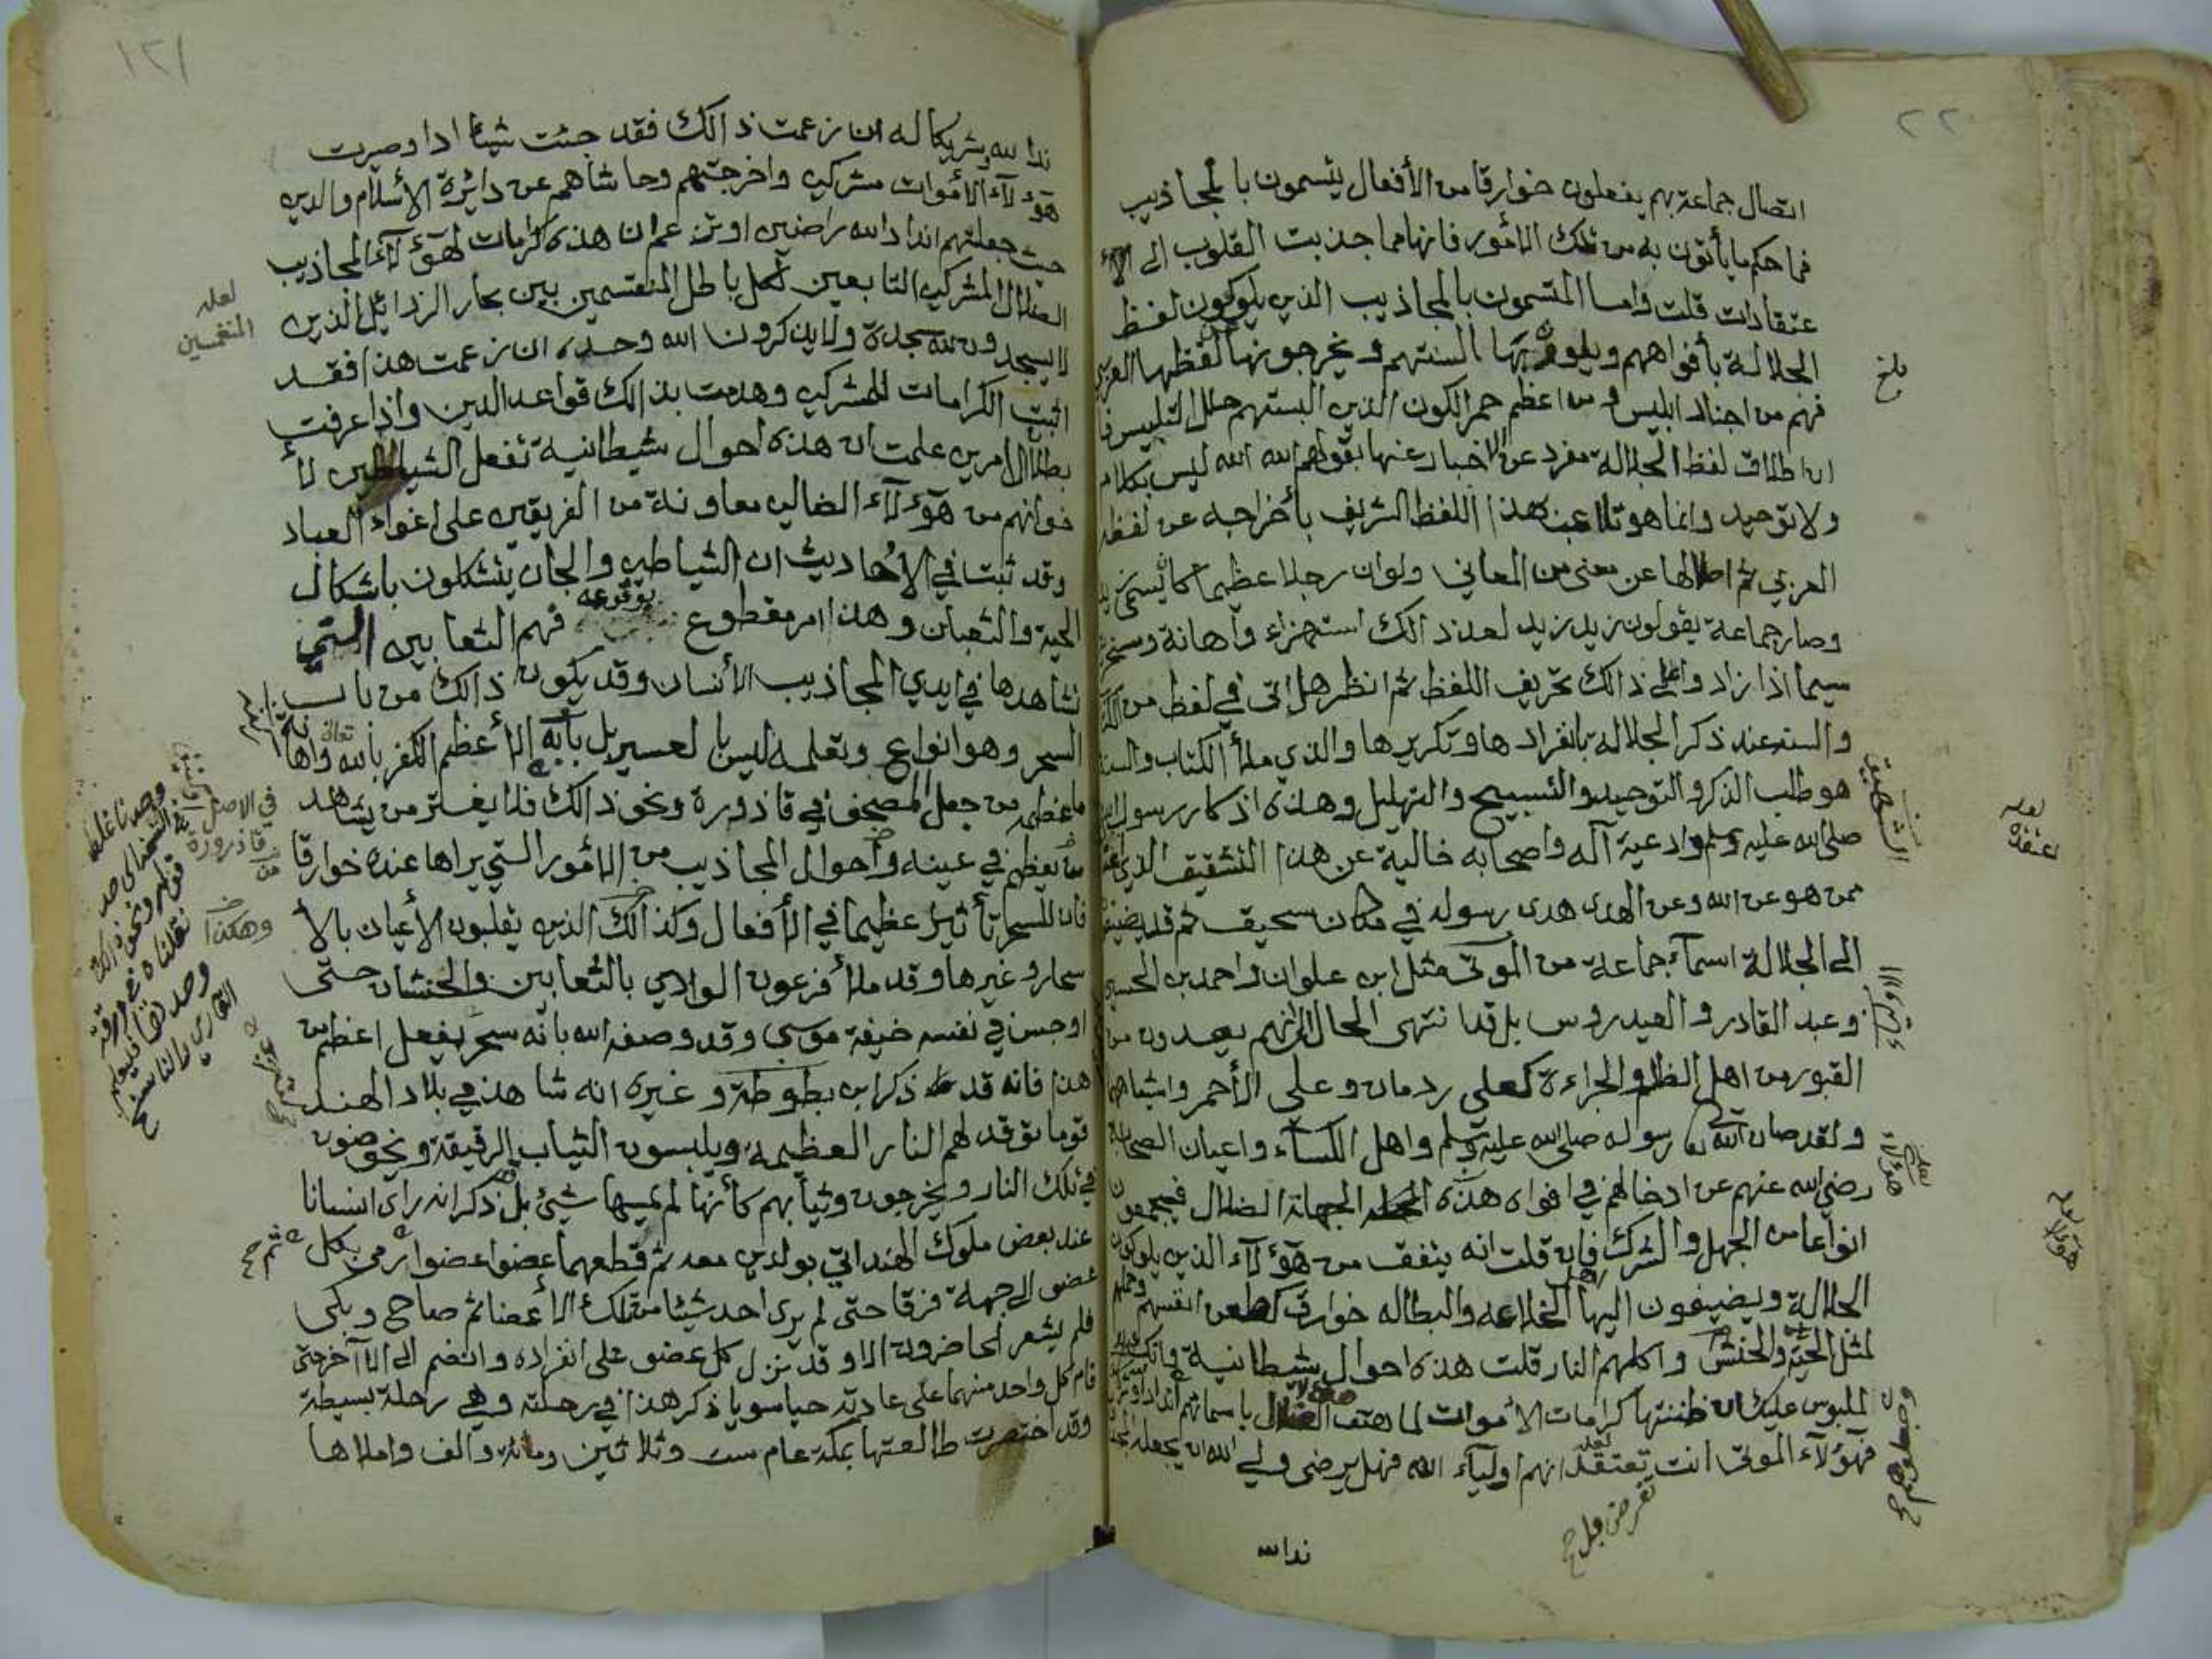 ٢٢
اتصال جماعة بهم يفعلون خوارقا من الأفعال يتسمون بالمجاذيب
فما حكم ما يأتون به من تلك الامور فانها مما جذبت القلوب الى الا
عتقادات قلت واما المتسمون بالمجاذيب الذين يلوكون لفظ
الجلالة بأفواههم ويلون بها السنتهم ويخرجونها لفظها العربي
فهم من اجناد ابليس ومن اعظم حمر الكون الذين البستهم حلل التلبيس
ان اطلاق لفظ الجلالة مفرد عن الاخبار عنها بقولهم الله الله ليس بكلام
ولا توحيد وانما هو تلاعب بهذا اللفظ الشريف بأخراجه عن لفظه
العربي ثم اخلالها عن معنى من المعاني ولو ان رجلا عظيما كان يسمى
وصار جماعة يقولون زيد زيد لعد ذالك استهزاء واهانة وسخرية
سيما اذا زاد واعلى ذالك تحريف اللفظ ثم انظر هل اتى في لفظ من
والسنه عند ذكر الجلالة بانفرادها وتكريرها والذي ملأ الكتاب والسنة
هو طلب الذكر والتوحيد والتسبيح والتهليل وهذه اذكار رسول
صلى الله عليه وسلم وادعية آله واصحابه خالية عن هذا التشقيق الذي
ممن هو عن الله وعن الهدى هدى رسوله في مكان سحيق ثم قد يضيفون
الى الجلالة اسماء جماعة من الموتى مثل ابن علوان واحمد بن الحسين
وعبد القادر والعيدروس بل قد انتهى الحال الى انهم يعيدون من
القبور من اهل الظلم والجراءة كعلي ردمان وعلي الأحمر واشباههم
ولقد صان الله رسوله صلى الله عليه وسلم واهل الكساء واعيان الصحابة
رضي الله عنهم عن ادخالهم في افواه هذه الجهلة الضلال فيجمعون
انواعا من الجهل والشرك فان قلت انه يتفق من هؤلاء الذين يلوكون
الجلالة ويضيفون اليها الخلاعه والبطاله خوارق كطعن انفسهم
لمثل الحية والحنش واكلهم النار قلت هذه احوال شيطانية وانك
لملبوس عليك ان ظننتها كرامات الأموات لما هتف الضلال باسمائهم
فهؤلاء الموتى انت تعتقد انهم اولياء الله فهل يرضى ولي الله ان يجعله
ندا لله
لعله
عتقده
لعله
هؤلاء
١٢١
ندا لله وشريكا له ان زعمت ذالك فقد جئت شيئا ادا وصيرت
هؤلاء الأموات مشركين واخرجتهم وحاشاهم عن دائرة الأسلام والدين
حيث جعلتهم انداد الله راضين او تزعم ان هذه كرامات لهؤلاء المجاذيب
الضلال المشركين التابعين لكل باطل المنغسمين بين بحار الرذائل الذين
لا يسجدون لله سجدة ولا يذكرون الله وحده ان زعمت هذا فقد
اثبت الكرامات للمشركين وهدمت بذالك قواعد الدين واذا عرفت
بطلان الامرين علمت ان هذه احوال شيطانية تفعل الشياطين لأ
خوانهم من هؤلاء الضالين معاونة من الفريقين على اغواء العباد
وقد ثبت في الأحاديث ان الشياطين والجان يتشكلون باشكال
الحية والثعبان وهذا امر مقطوع بوقوعه فهم الثعابين التي
نشاهدها في ايدي المجاذيب الأنسان وقد يكون ذالك من باب
السحر وهو انواع وتعلمه ليس بالعسير بل بابه الأعظم الكفر بالله واها
ما عظمه من جعل المصحف في قاذورة ونحو ذالك فلا يغتر من يشاهد
ما يعظم في عينه واحوال المجاذيب من الأمور التي يراها عنده خوارقا
فان للسحر تأثيرا عظيما في الأفعال وكذالك الذين يقلبون الأعيان بالأ
سحار وغيرها وقد ملأ فرعون الوادي بالثعابين والحنشان حتى
اوجس في نفسه خيفة موسى وقد وصفه الله بأنه سحر يفعل اعظم من
هذا فانه قد ذكر ابن بطوطة وغيره انه شاهد في بلاد الهند
قوما توقد لهم النار العظيمه ويلبسون الثياب الرقيقة ويخوضون
في تلك النار ويخرجون وثيابهم كأنها لم يمسها شيئ بل ذكر انه راى انسانا
عند بعض ملوك الهند اتى بولدين معه ثم قطعهما عضوا عضوا ثم رمى بكل
عضو الى جهة فرقا حتى لم يرى احد شيئا من تلك الأعضا ثم صاح وبكى
فلم يشعر الحاضرون الا وقد نزل كل عضو على انفراده وانضم الى الاآخر حتى
قام كل واحد منهما على عادته حيا سويا ذكر هذا في رحلته وهي رحلة بسيطة
وقد اختصرت طالعتها بمكة عام ست وثلاثين ومائة والف واملاها
لعله
المنغمسين
في الاصل
قاذرورة
وهكذا